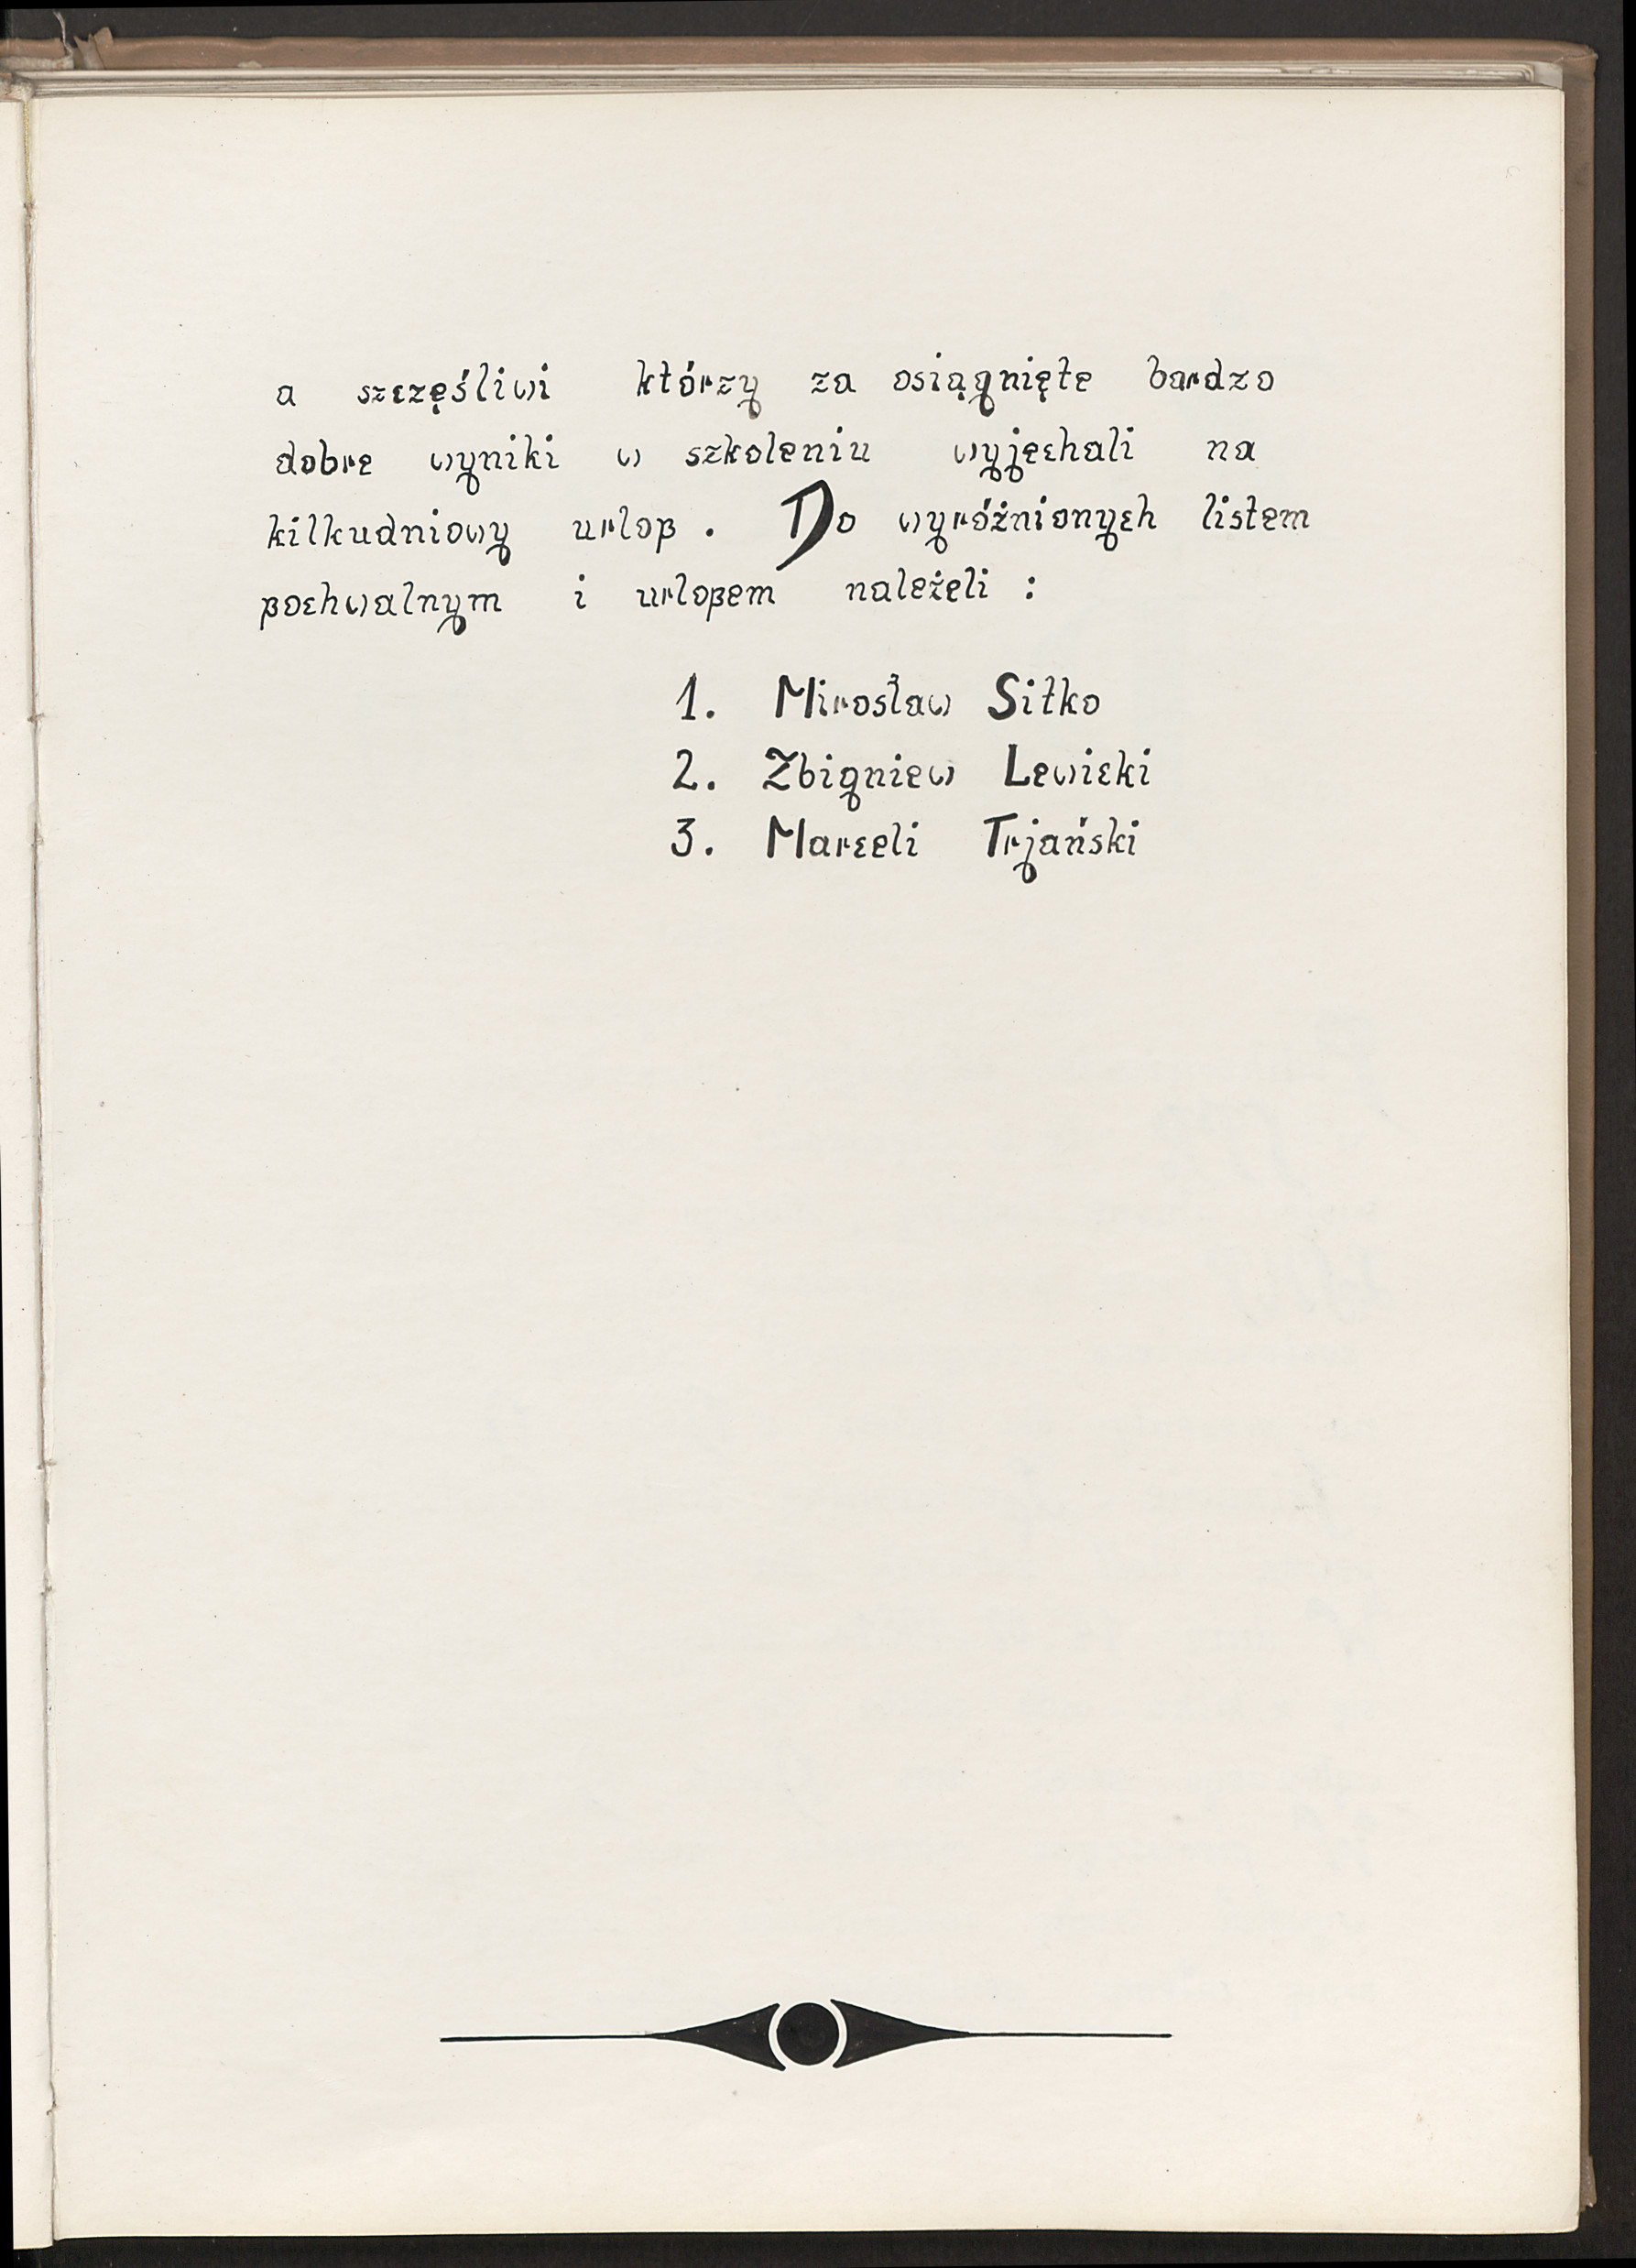 a szczęśliwi którzy za osiągnięte bardzo
dobre wyniki w szkoleniu wyjechali na
kilkudniowy urlop. Do wyróżnionych listem
pochwalnym i urlopem należeli :
1. Mirosław Sitko
2. Zbigniew Lewicki
3. Marceli Trjański